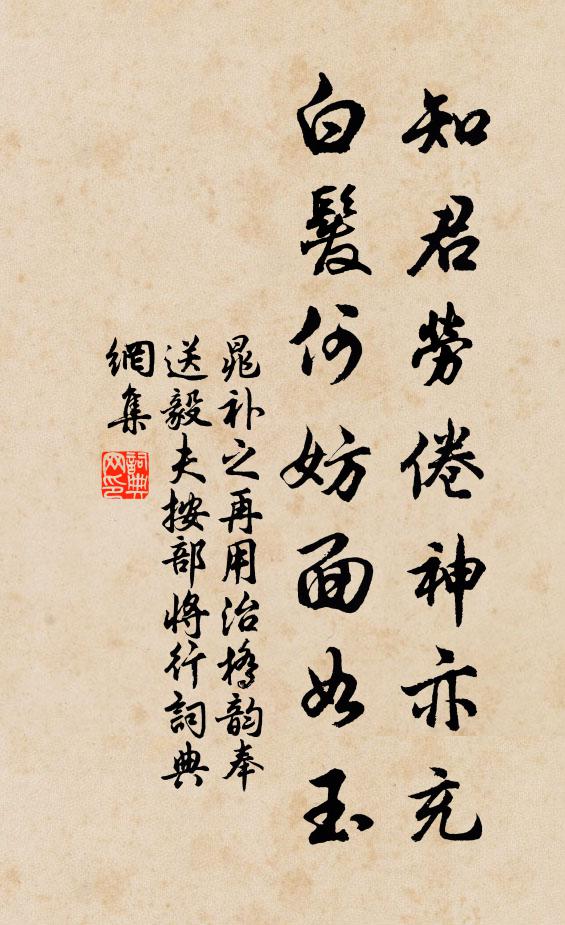 知君勞倦神亦充
白髮何妨面如玉
晁补之再用治橋韵奉
送毅夫按部将行詞典
網集
詞典
网印